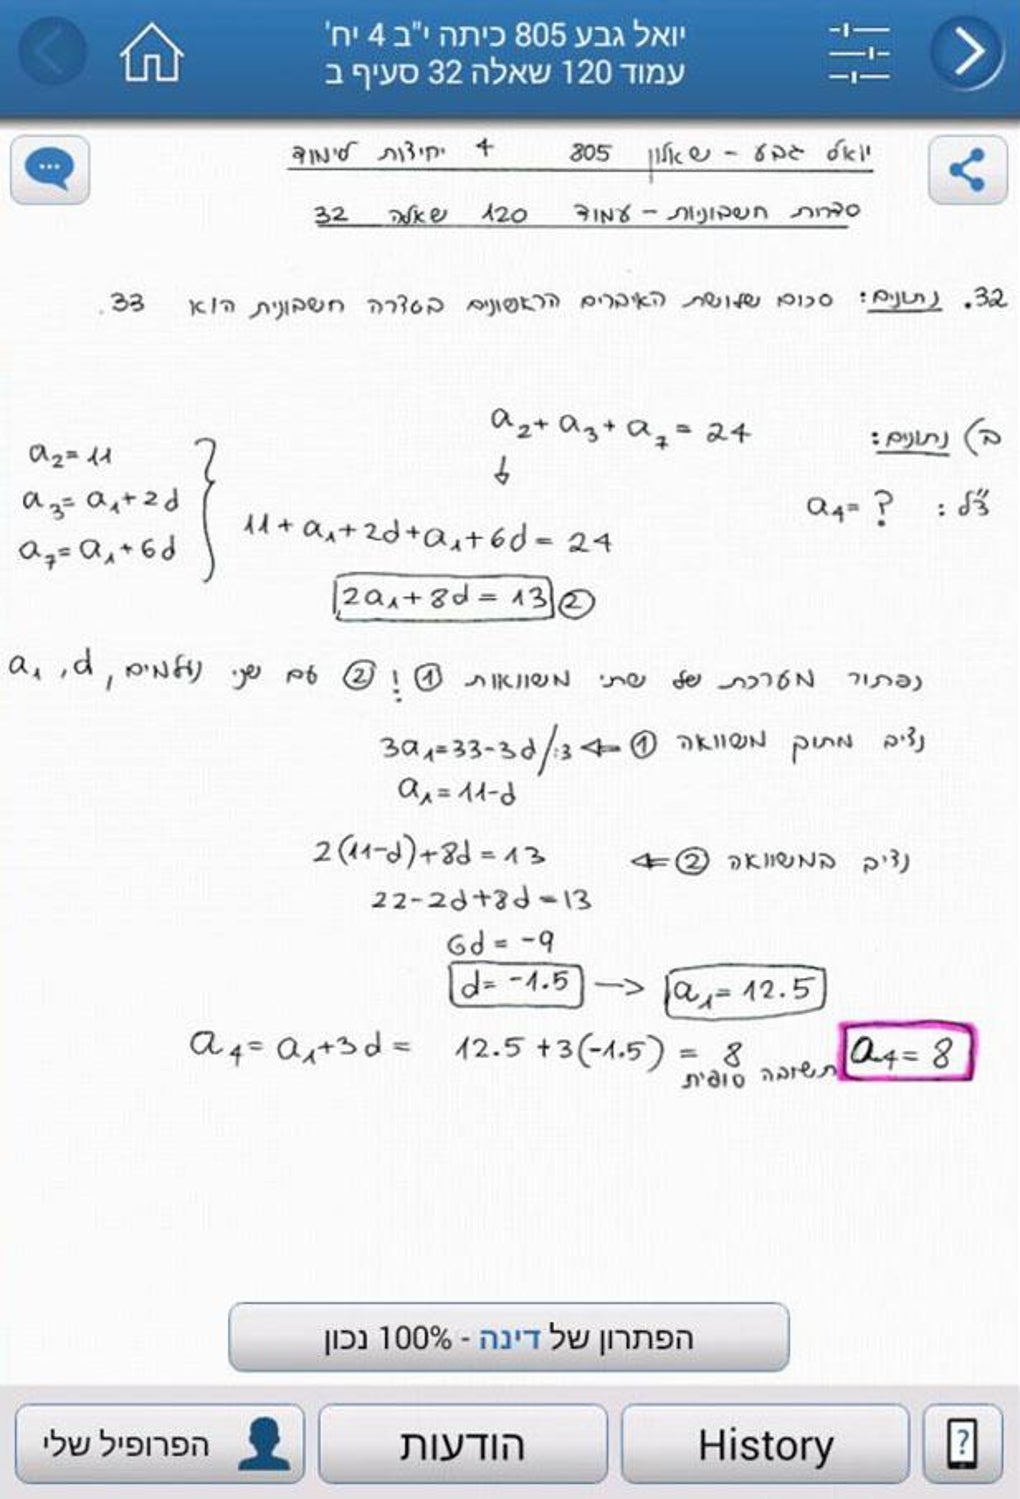 יואל גבע 805 כיתה י"ב 4 יח'
עמוד 120 שאלה 32 סעיף ב
יואל גבע - שאלון 805 4 יחידות לימוד
סדרות חשבוניות - עמוד 120 שאלה 32
32. נתונים: סכום שלושת האיברים הראשונים בסדרה חשבונית הוא 33.
ב) נתונים: a₂+a₃+a₇=24
↓
צ"ל: a₄=?
a₂=11
a₃=a₁+2d
a₇=a₁+6d
11+a₁+2d+a₁+6d=24
2a₁+8d=13 ②
נפתור מערכת של שתי משוואות ① ו ② עם שני נעלמים, a₁,d
נציב מתוך משוואה ① ⇐ 3a₁=33-3d/:3
a₁=11-d
נציב במשוואה ② ⇐ 2(11-d)+8d=13
22-2d+8d=13
6d=-9
d=-1.5 → a₁=12.5
a₄=a₁+3d= 12.5+3(-1.5)=8
תשובה סופית a₄=8
הפתרון של דינה - 100% נכון
הפרופיל שלי
הודעות
History
?